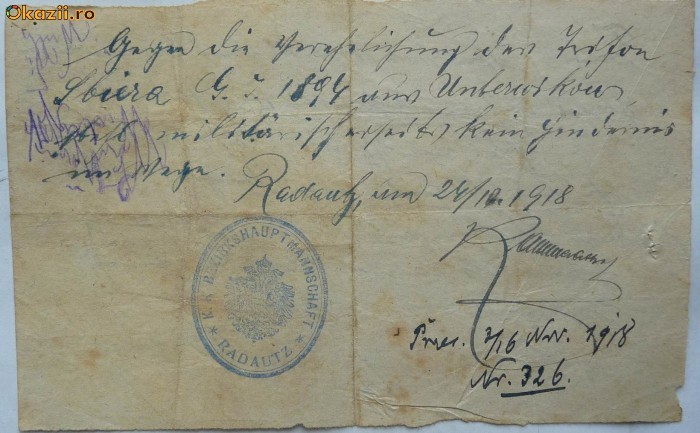 Okazii.ro
Gegen die Verehelichung des Trifon
Sbiera G. J. 1894 aus Unterwikow
steht militärischerseits kein Hindernis
im Wege.
Radautz, am 24/10. 1918
K. K. BEZIRKSHAUPTMANNSCHAFT
* RADAUTZ *
Praes. 3/16 Nov. 1918
Nr. 326.